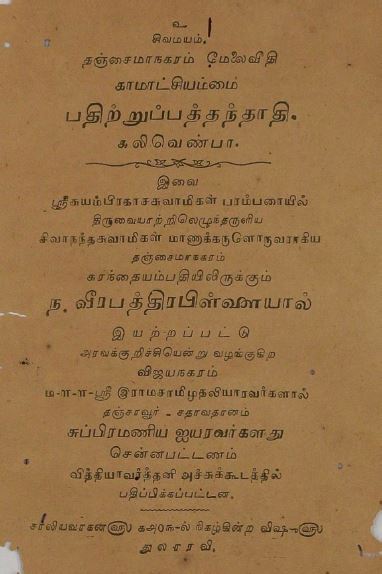 உ
சிவமயம்.
தஞ்சைமாநகரம் மேலைவீதி
காமாட்சியம்மை
பதிற்றுப்பத்தந்தாதி.
கலிவெண்பா.
இவை
ஸ்ரீசுயம்பிரகாசசுவாமிகள் பரம்பரையில்
திருவையாற்றிலெழுந்தருளிய
சிவாநந்தசுவாமிகள் மாணாக்கருளொருவராகிய
தஞ்சைமாநகரம்
கரந்தையம்பதியிலிருக்கும்
ந. வீரபத்திரபிள்ளையால்
இயற்றப்பட்டு
அரவக்குறிச்சியென்று வழங்குகிற
விஜயநகரம்
ம-ள-ள-ஸ்ரீ இராமசாமிமுதலியாரவர்களால்
தஞ்சாவூர் - சதாவதானம்
சுப்பிரமணிய ஐயரவர்களது
சென்னபட்டணம்
வித்தியாவர்த்தனி அச்சுக்கூடத்தில்
பதிப்பிக்கப்பட்டன.
நிகழ்கின்ற
துலாரவி.